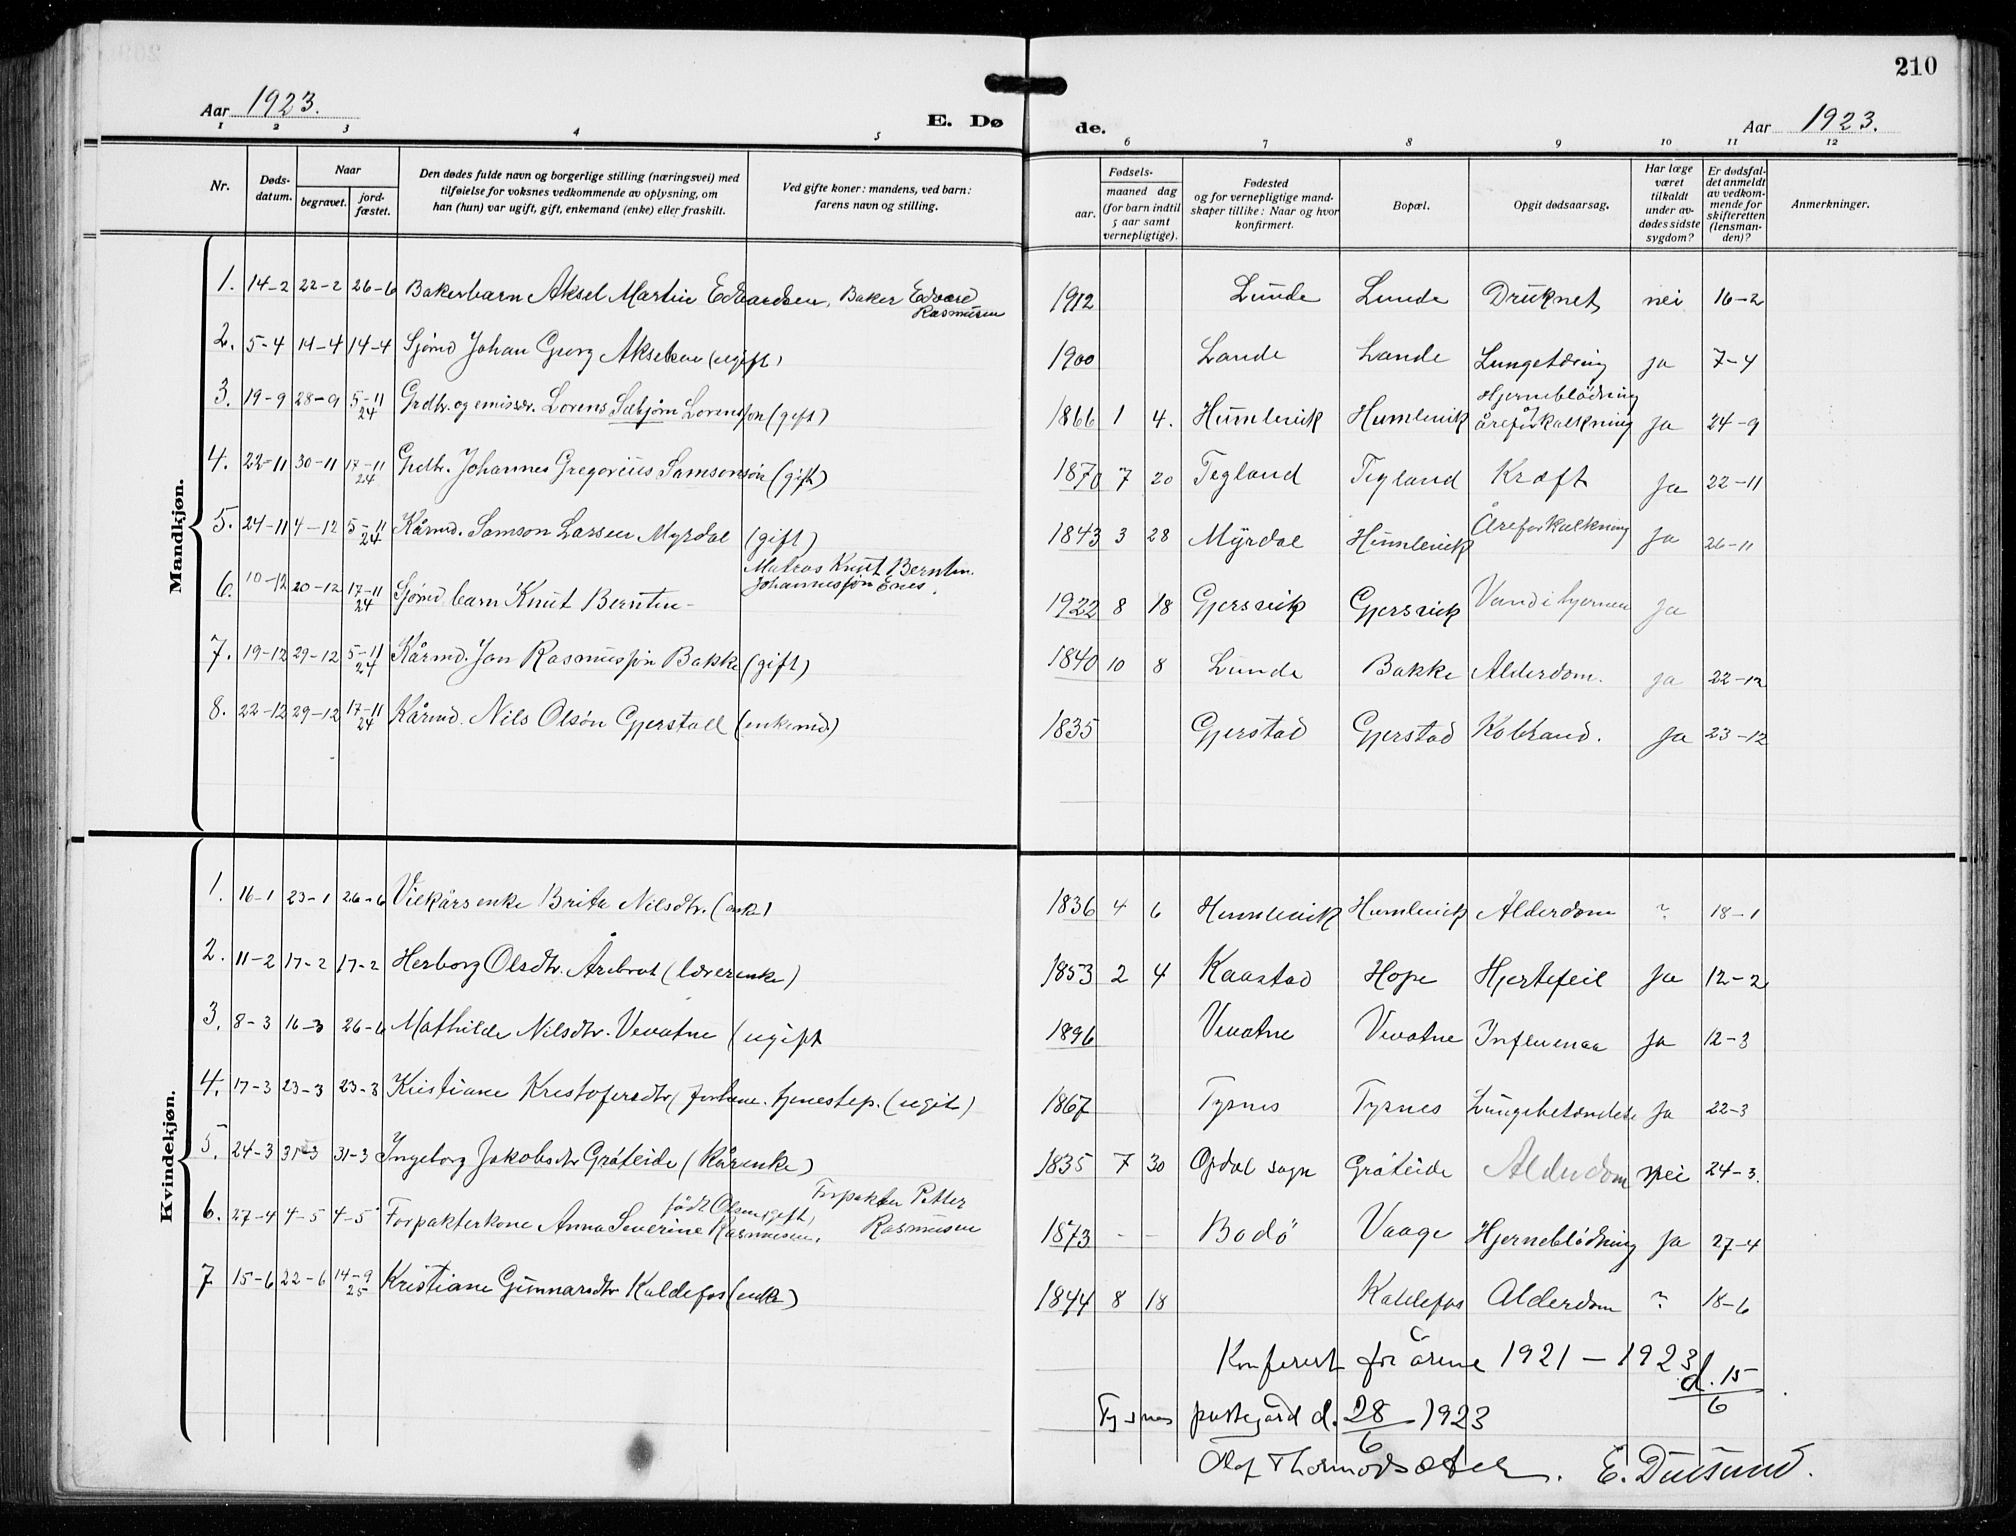 210
Aar 1923.
E. Dø de.
Aar 1923.
1 2 3 4 5 6 7 8 9 10 11 12
Nr.
Døds-
datum.
Naar
begravet.
jord-
fæstet.
Den dødes fulde navn og borgerlige stilling (næringsvei) med
tilføielse for voksnes vedkommende av oplysning, om
han (hun) var ugift, gift, enkemand (enke) eller fraskilt.
Ved gifte koner: mandens, ved barn:
farens navn og stilling.
Fødsels-
aar.
maaned dag
(for barn indtil
5 aar samt
vernepligtige).
Fødested
og for vernepligtige mand-
skaper tillike: Naar og hvor
konfirmert.
Bopæl.
Opgit dødsaarsag.
Har læge
været
tilkaldt
under av-
dødes sidste
sygdom?
Er dødsfal-
det anmeldt
av vedkom-
mende for
skifteretten
(lensman-
den)?
Anmerkninger.
Mandkjøn.
1. 14-2 22-2 26-6 Bakerbarn Aksel Martin Edvardsen, Baker Edvard Rasmusen 1912 Lunde Lunde Druknet nei 16-2
2. 5-4 14-4 14-4 Sjømd Johan Georg Akselsen (ugift) 1900 Lande Lande Lungetæring ja 7-4
3. 19-9 28-9 5-11 24 Grdbr. og emissær. Lorens Sæbjørn Lorenssøn (gift) 1866 1 4. Humlevik Humlevik Hjerneblödning og åreforkalkning Ja 24-9
4. 22-11 30-11 17-11 24 Grdbr. Johannes Gregorius Samsonsön (gift) 1870 7 20 Tegland Tegland Kræft Ja 22-11
5. 24-11 4-12 5-11 24 Kårmd. Samson Larsen Myrdal (gift) 1843 3 28 Myrdal Humlevik Åreforkalkning Ja 26-11
6. 10-12 20-12 17-11 24 Sjømd barn Knut Berntin- Matros Knut Berntin. Johannessøn Enes. 1922 8 18 Gjersvik Gjersvik Vand i hjernen Ja
7. 19-12 29-12 5-11 24 Kårmd. Jan Rasmussøn Bakke (gift) 1840 10 8 Lunde Bakke Alderdom. ja 22-12
8. 22-12 29-12 17-11 24 Kårmd. Nils Olsön Gjerstad (enkemd.) 1835 Gjerstad Gjerstad Kolbrand. Ja 23-12
Kvindekjøn.
1. 16-1 23-1 26-6 Vilkårsenke Brita Nilsdtr. (enke) 1836 4 6 Humlevik Humlevik Alderdom ? 18-1
2. 11-2 17-2 17-2 Herborg Olsdtr. Årebrot (lærerenke) 1853 2 4 Kaastad Hope Hjertefeil Ja 12-2
3. 8-3 16-3 26-6 Mathilde Nilsdtr. Vevatne (ugift 1896 Vevatne Vevatne Influensa Ja 12-3
4. 17-3 23-3 23-3 Kristiane Kristofersdtr tjenestep. (ugit) 1867 Tysnes Tysnes Lungebetændelse Ja 22-3
5. 24-3 31-3 31-3 Ingeborg Jakobsdtr Gråteide (Kårenke) 1835 7 30 Opdal sogn Gråteide Alderdom nei 24-3.
6. 27-4 4-5 4-5 Forpakterkone Anna Severine Rasmusen, född Olsen, gift, Forpakter Petter Rasmusen 1873 - - Bodö Vaage Hjerneblödning Ja 27-4
7 15-6 22-6 14-9 25 Kristiane Gunnarsdtr Kaldefos (enke) 1844 8 18 Kaldefos Alderdom ? 18-6
Konferert for årene 1921 - 1923 d. 15/6
Tysnes prestegård d. 28/6 1923
Olof Thormodsæter. E. Duesund.